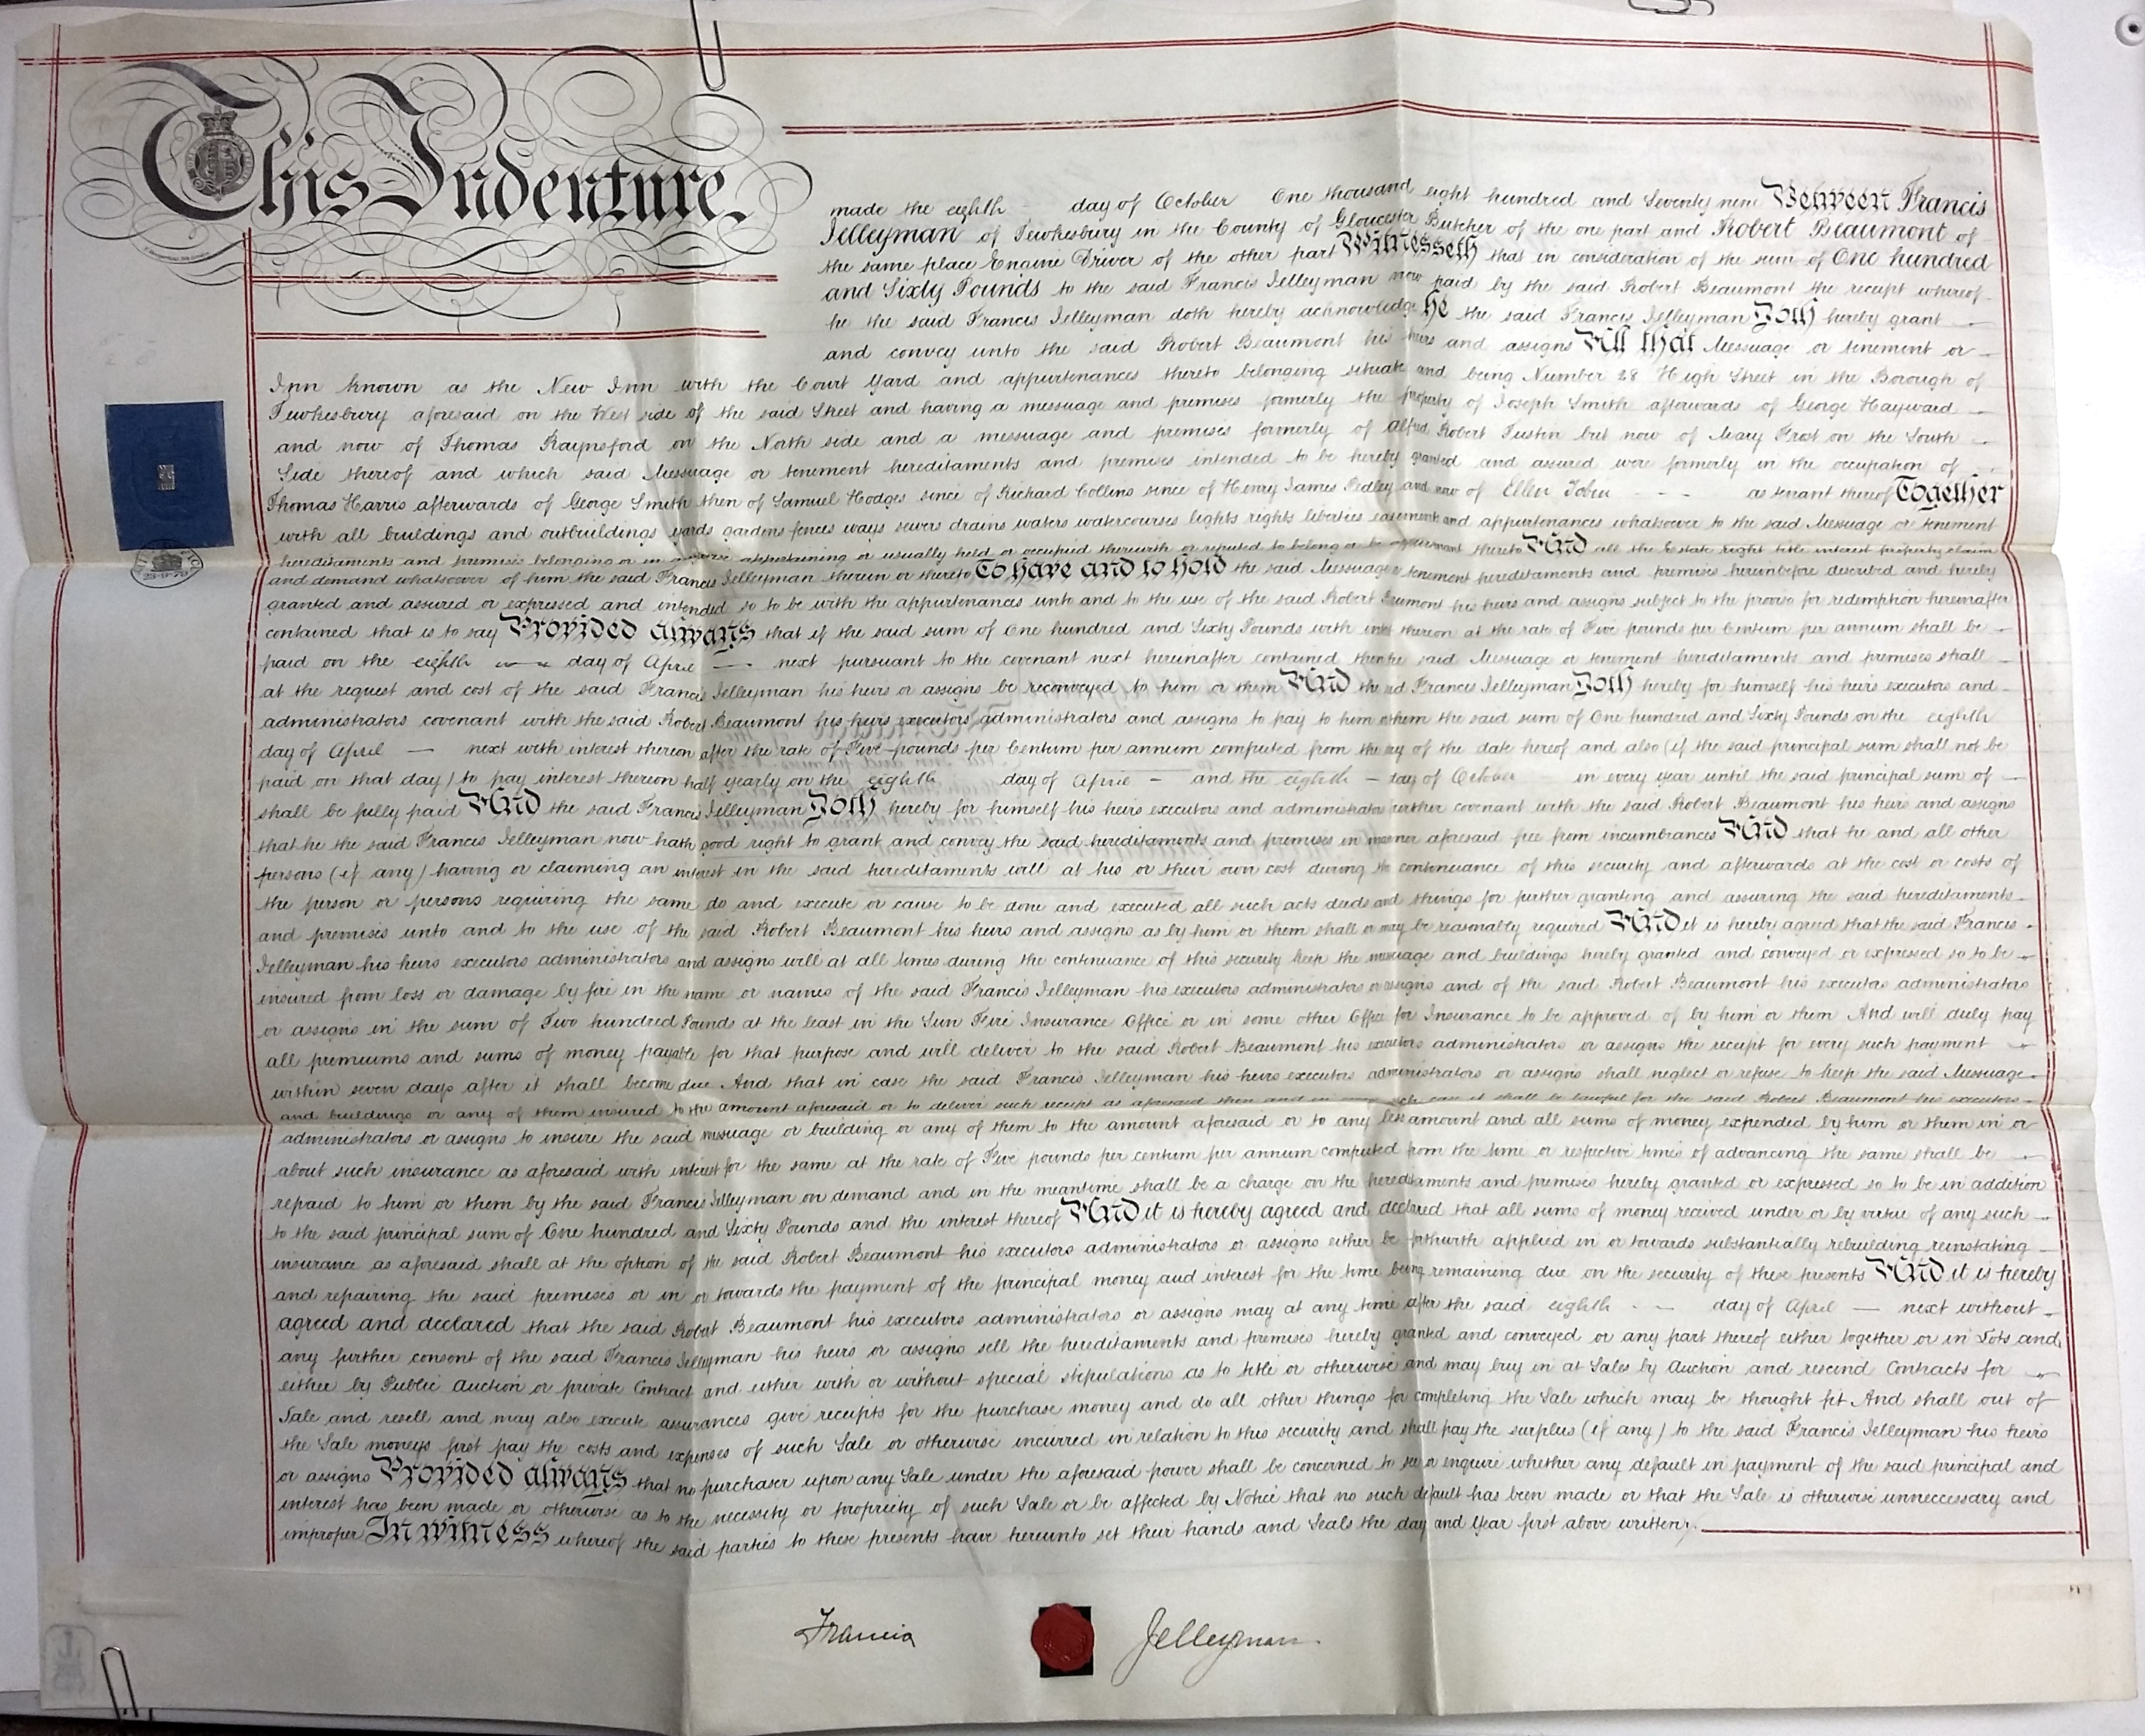 This Indenture
made the eighth day of October One thousand eight hundred and Seventy nine Between Francis
Jelleyman of Tewkesbury in the County of Gloucester Butcher of the one part and Robert Beaumont of
the same place Engine Driver of the other part Witnesseth that in consideration of the sum of One hundred
and Sixty Pounds to the said Francis Jelleyman now paid by the said Robert Beaumont the receipt whereof
he the said Francis Jelleyman doth hereby acknowledge He the said Francis Jelleyman Doth hereby grant
and convey unto the said Robert Beaumont his heirs and assigns All that Messuage or tenement or
Inn known as the New Inn with the Court Yard and appurtenances thereto belonging situate and being Number 28 High Street in the Borough of
Tewkesbury aforesaid on the West side of the said Street and having a messuage and premises formerly the property of Joseph Smith afterwards of George Hayward
and now of Thomas Raynsford on the North side and a messuage and premises formerly of Alfred Robert Tustin but now of Mary Frost on the South
Side thereof and which said Messuage or tenement hereditaments and premises intended to be hereby granted and assured were formerly in the occupation of
Thomas Harris afterwards of George Smith then of Samuel Hodges since of Richard Collins since of Henry James Pedley and now of Ellen as tenant thereof Together
with all buildings and outbuildings yards gardens fences ways sewers drains waters watercourses lights rights liberties easements and appurtenances whatsoever to the said Messuage or tenement
hereditaments and premises belonging or in anywise appertaining or usually held or occupied therewith or reputed to belong or be appurtenant thereto And all the Estate right title interest property claim
and demand whatsoever of him the said Francis Jelleyman therein or thereto To have and to hold the said Messuage or tenement hereditaments and premises hereinbefore described and hereby
granted and assured or expressed and intended so to be with the appurtenances unto and to the use of the said Robert Beaumont his heirs and assigns subject to the proviso for redemption hereinafter
contained that is to say Provided always that if the said sum of One hundred and Sixty Pounds with interest thereon at the rate of Five pounds per Centum per annum shall be
paid on the eighth day of April next pursuant to the covenant next hereinafter contained then the said Messuage or tenement hereditaments and premises shall
at the request and cost of the said Francis Jelleyman his heirs or assigns be reconveyed to him or them And the said Francis Jelleyman Doth hereby for himself his heirs executors and
administrators covenant with the said Robert Beaumont his heirs executors administrators and assigns to pay to him or them the said sum of One hundred and Sixty Pounds on the eighth
day of April next with interest thereon after the rate of Five pounds per Centum per annum computed from the day of the date hereof and also (if the said principal sum shall not be
paid on that day) to pay interest thereon half yearly on the eighth day of April and the eighth day of October in every year until the said principal sum of
shall be fully paid And the said Francis Jelleyman Doth hereby for himself his heirs executors and administrators further covenant with the said Robert Beaumont his heirs and assigns
that he the said Francis Jelleyman now hath good right to grant and convey the said hereditaments and premises in manner aforesaid free from incumbrances And that he and all other
persons (if any) having or claiming an interest in the said hereditaments will at his or their own cost during the continuance of this security and afterwards at the cost or costs of
the person or persons requiring the same do and execute or cause to be done and executed all such acts deeds and things for further granting and assuring the said hereditaments
and premises unto and to the use of the said Robert Beaumont his heirs and assigns as by him or them shall or may be reasonably required And it is hereby agreed that the said Francis
Jelleyman his heirs executors administrators and assigns will at all times during the continuance of this security keep the messuage and buildings hereby granted and conveyed or expressed so to be
insured from loss or damage by fire in the name or names of the said Francis Jelleyman his executors administrators or assigns and of the said Robert Beaumont his executors administrators
or assigns in the sum of Two hundred Pounds at the least in the Sun Fire Insurance Office or in some other Office for Insurance to be approved of by him or them And will duly pay
all premiums and sums of money payable for that purpose and will deliver to the said Robert Beaumont his executors administrators or assigns the receipt for every such payment
within seven days after it shall become due And that in case the said Francis Jelleyman his heirs executors administrators or assigns shall neglect or refuse to keep the said Messuage
and buildings or any of them insured to the amount aforesaid or to deliver such receipt as aforesaid then and in any such case it shall be lawful for the said Robert Beaumont his executors
administrators or assigns to insure the said messuage or building or any of them to the amount aforesaid or to any less amount and all sums of money expended by him or them in or
about such insurance as aforesaid with interest for the same at the rate of Five pounds per centum per annum computed from the time or respective times of advancing the same shall be
repaid to him or them by the said Francis Jelleyman on demand and in the meantime shall be a charge on the hereditaments and premises hereby granted or expressed so to be in addition
to the said principal sum of One hundred and Sixty Pounds and the interest thereof And it is hereby agreed and declared that all sums of money received under or by virtue of any such
insurance as aforesaid shall at the option of the said Robert Beaumont his executors administrators or assigns either be forthwith applied in or towards substantially rebuilding reinstating
and repairing the said premises or in or towards the payment of the principal money and interest for the time being remaining due on the security of these presents And it is hereby
agreed and declared that the said Robert Beaumont his executors administrators or assigns may at any time after the said eighth day of April next without
any further consent of the said Francis Jelleyman his heirs or assigns sell the hereditaments and premises hereby granted and conveyed or any part thereof either together or in Lots and
either by Public Auction or private Contract and either with or without special stipulations as to title or otherwise and may buy in at Sales by Auction and rescind Contracts for
Sale and resell and may also execute assurances give receipts for the purchase money and do all other things for completing the Sale which may be thought fit And shall out of
the Sale moneys first pay the costs and expenses of such Sale or otherwise incurred in relation to this security and shall pay the surplus (if any) to the said Francis Jelleyman his heirs
or assigns Provided always that no purchaser upon any Sale under the aforesaid power shall be concerned to see or inquire whether any default in payment of the said principal and
interest has been made or otherwise as to the necessity or propriety of such Sale or be affected by Notice that no such default has been made or that the Sale is otherwise unneccessary and
improper In witness whereof the said parties to these presents have hereunto set their hands and Seals the day and Year first above written.
Francis Jelleyman